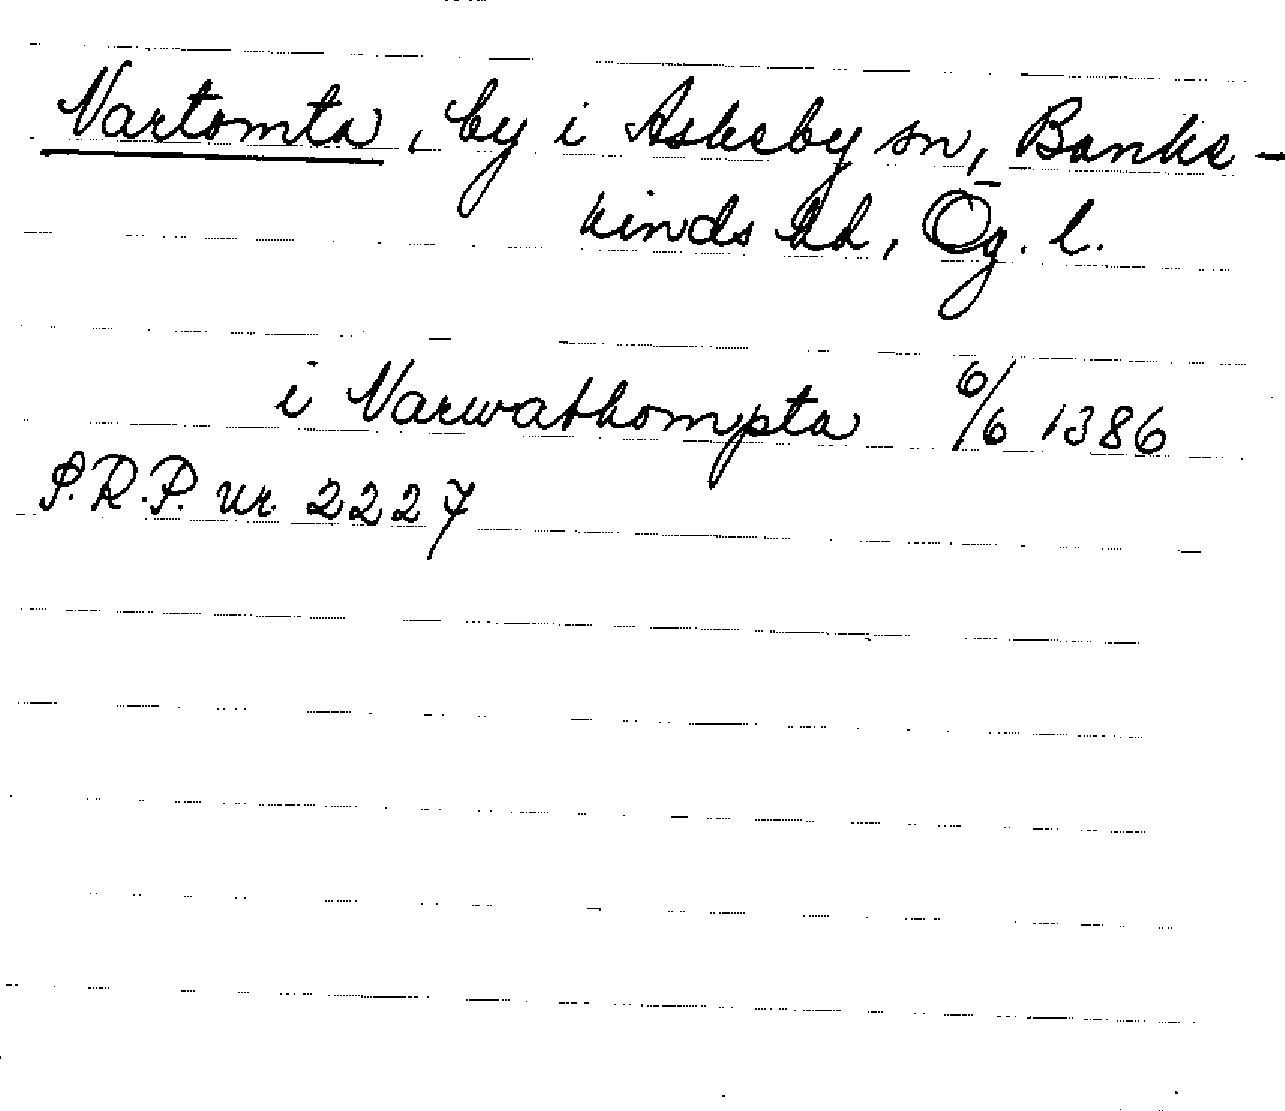 Vartomta, by i Askeby sn, Banke-
kinds hd, Ög. l.
i Varwathompta 6/6 1386
P.R.P. nr 2227